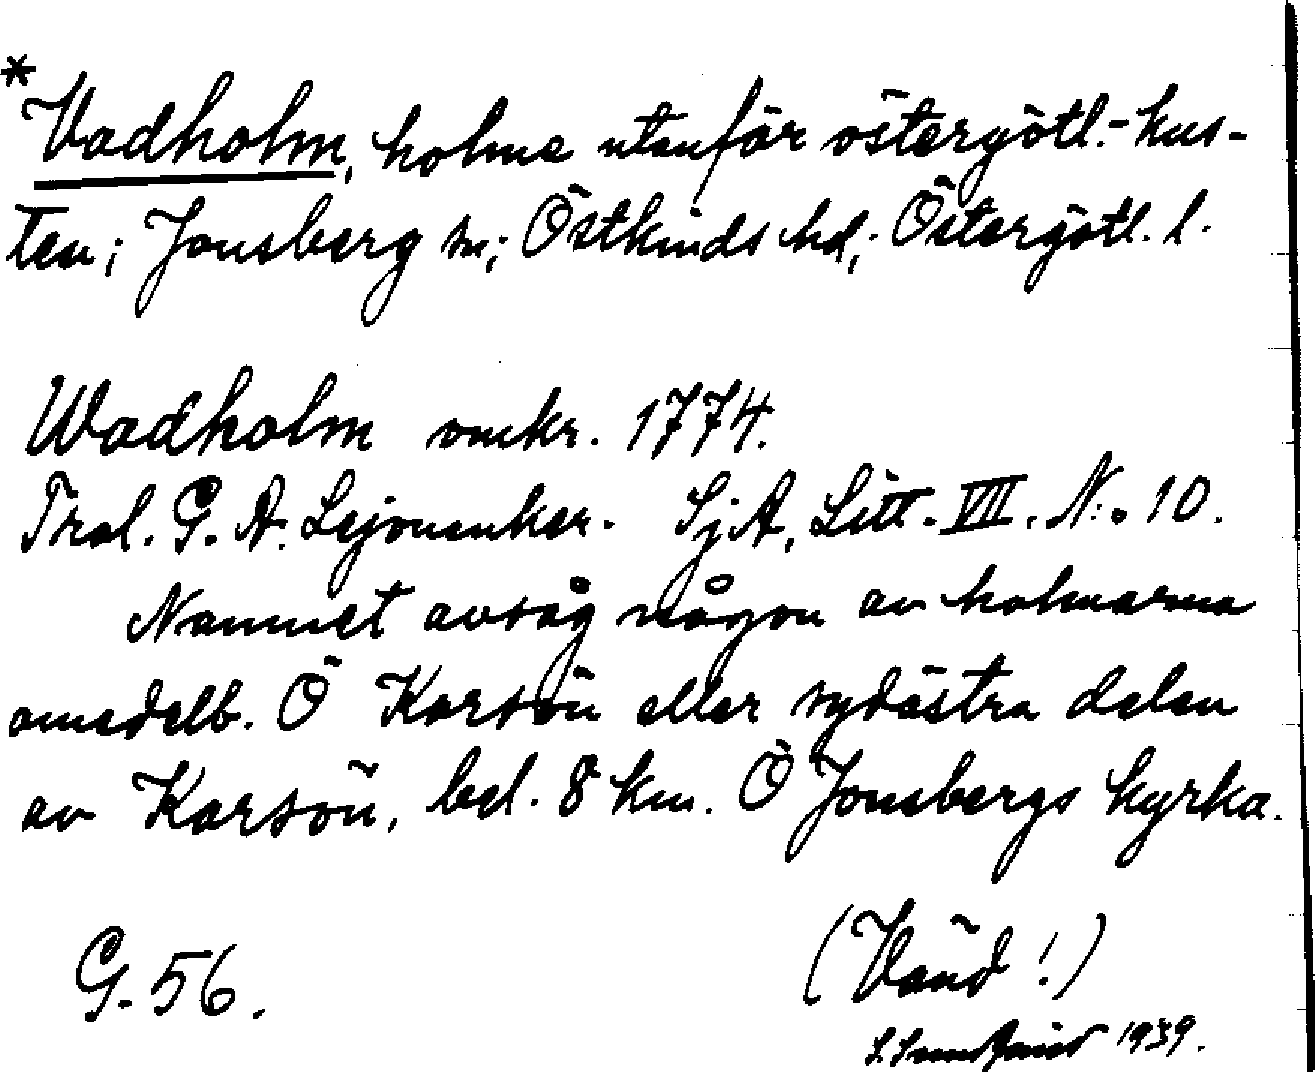 *Vadholm, holme utanför östergötl.-kus-
ten; Jonsberg sn; Östkinds hd; Östergötl. l.
Wadholm omkr. 1774.
Trol. G. A. Lejonanker. SjA, Litt. VII. N:o 10.
Namnet avsåg någon av holmarna
omedelb. Ö Karsön eller sydöstra delen
av Karsön, bel. 8 km. Ö Jonsbergs kyrka.
G. 56.
(Vänd!)
1939.